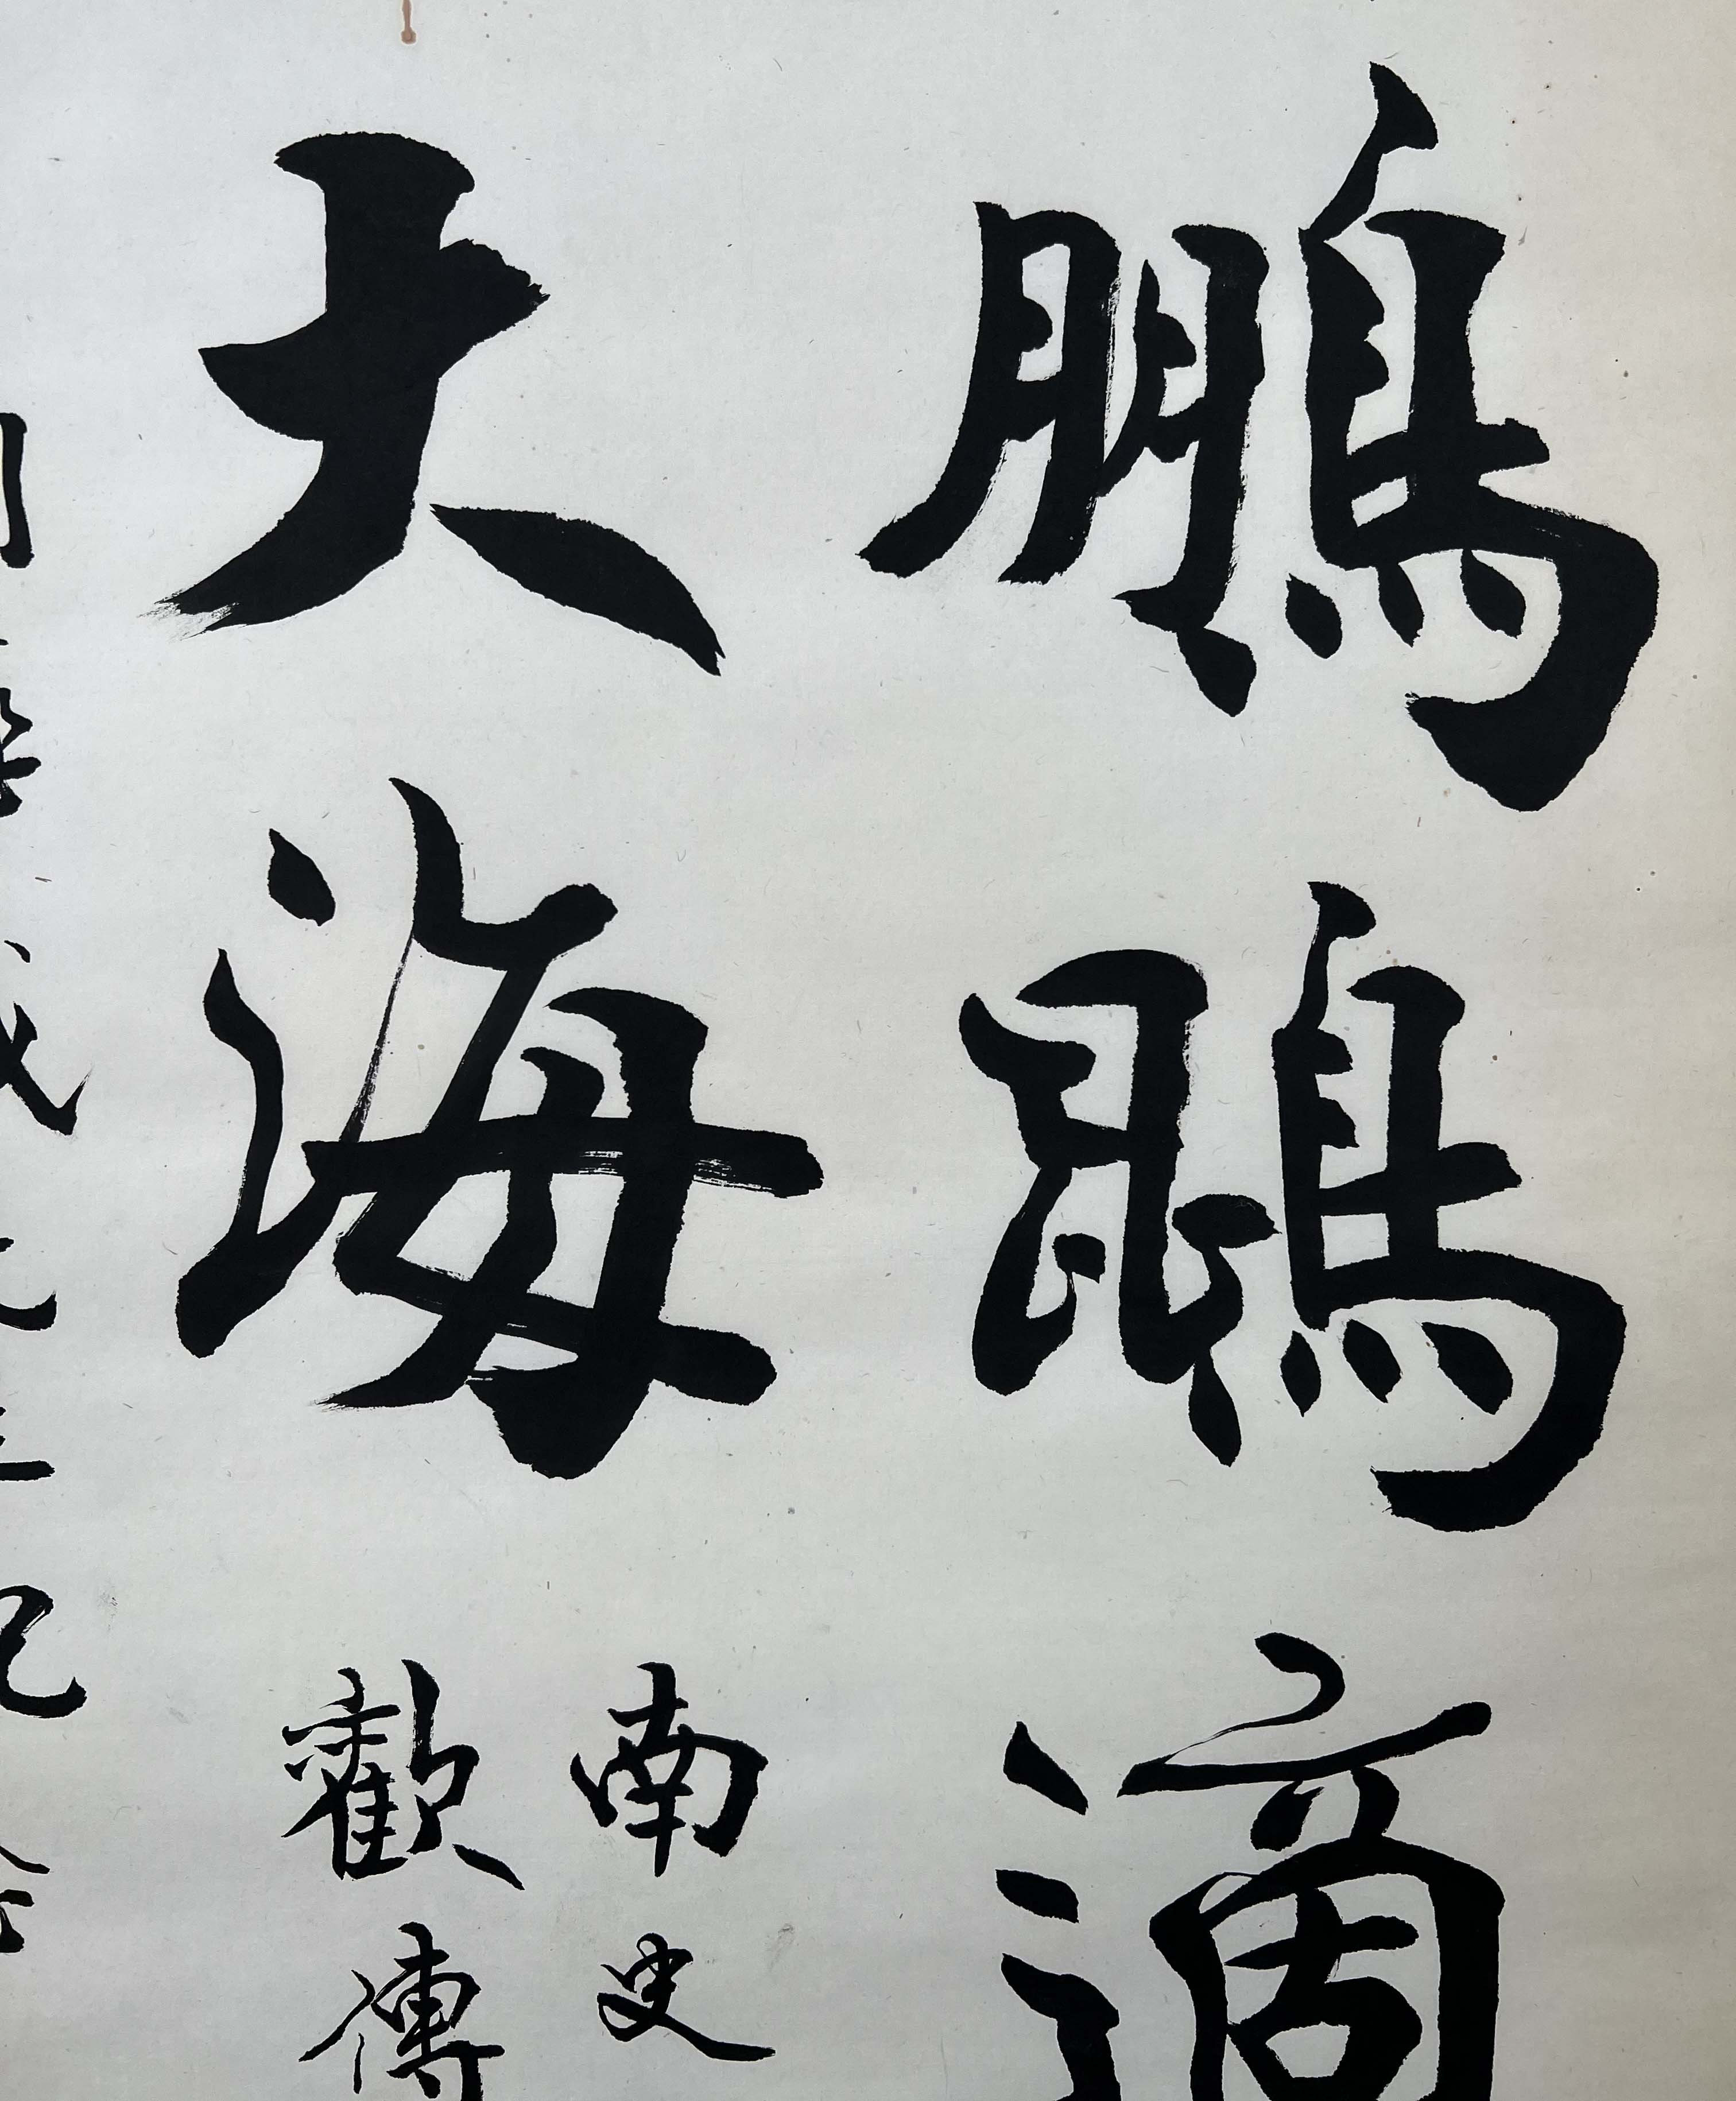 鵬鵾適
大海
南史
歡傳